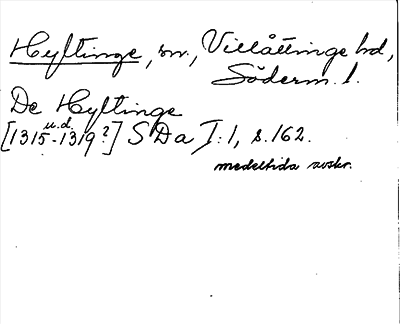 Hyltinge, sn., Villåttinge hd,
Söderm. l.
De Hyltinge
u.d.
[1315-1319?] SDa I:1, s.162.
medeltida avskr.